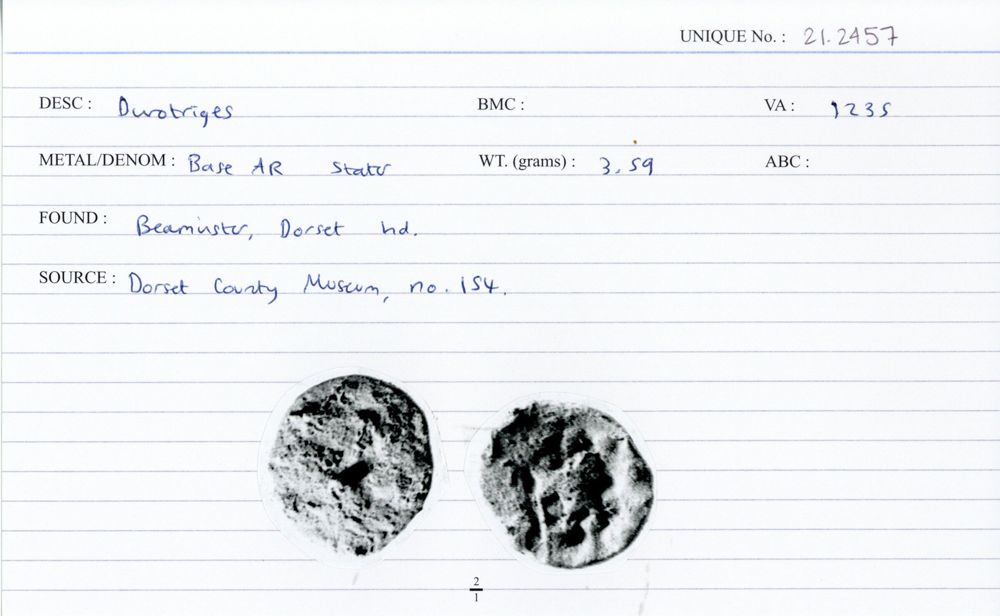 UNIQUE No. : 21.2457
DESC : Durotriges BMC : VA : 1235
METAL/DENOM : Base AR Stater WT. (grams) : 3.59 ABC :
FOUND : Beaminster, Dorset nd.
SOURCE : Dorset County Museum, no. 154.
2
1